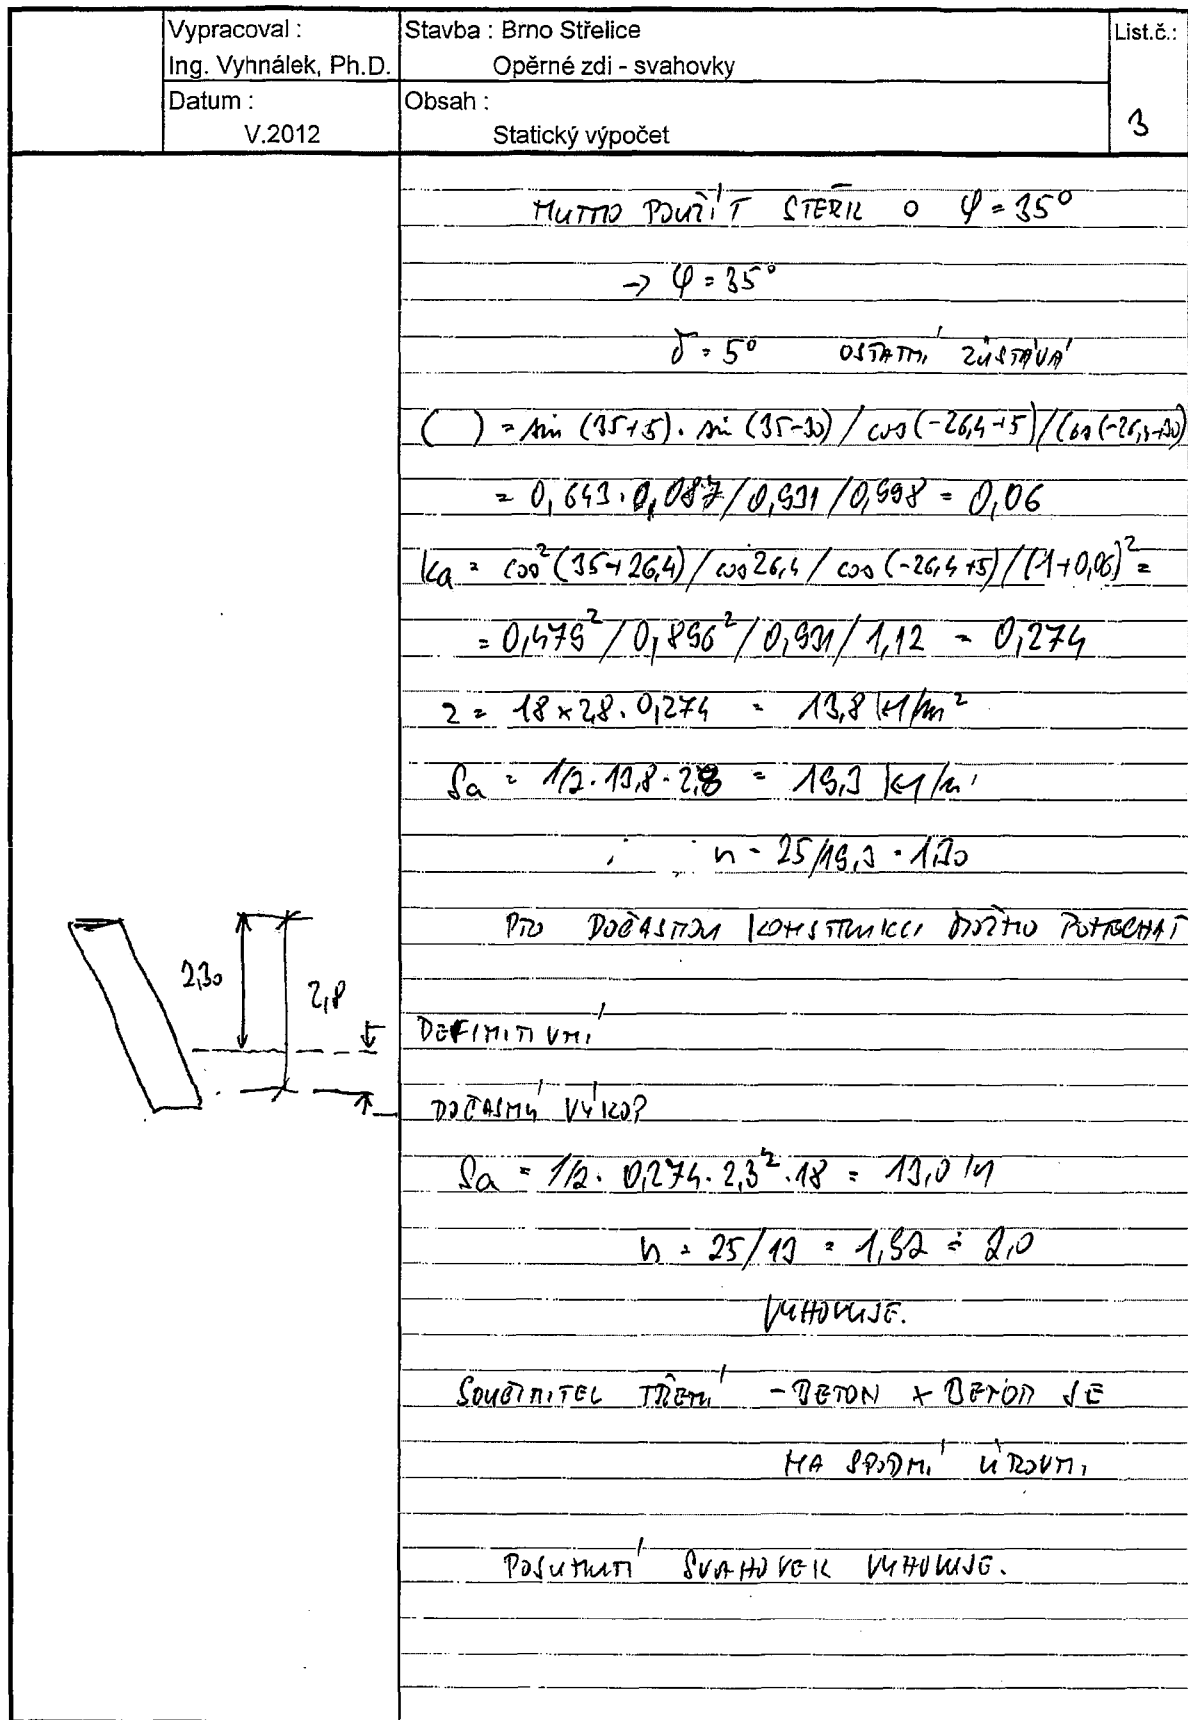 Vypracoval :
Ing. Vyhnálek, Ph.D.
Stavba : Brno Střelice
Opěrné zdi - svahovky
List.č.:
Datum :
V.2012
Obsah :
Statický výpočet
3
NUTNO POUŽÍT STĚRK O φ = 35°
→ φ = 35°
δ = 5° OSTATNÍ ZŮSTÁVÁ
( ) = sin (35+5) . sin (35-30) / cos (-26,4+5) / cos (-26,4+30)
= 0,643 . 0,087 / 0,931 / 0,998 = 0,06
ka = cos² (35+26,4) / cos 26,4 / cos (-26,4+5) / (1+0,06)² =
= 0,479² / 0,896² / 0,931 / 1,12 = 0,274
z = 18 x 2,8 . 0,274 = 13,8 kN/m²
Sa = 1/2 . 13,8 . 2,8 = 19,3 kN/m'
n = 25/19,3 = 1,30
PRO DOČASNOU KONSTRUKCI MOŽNO PONECHAT
2,30
2,8
DEFINITIVNÍ
DOČASNÝ VÝKOP
Sa = 1/2 . 0,274 . 2,3² . 18 = 13,0 kN
n = 25/13 = 1,92 ≐ 2,0
VYHOVUJE.
SOUČINITEL TŘENÍ - BETON x BETON JE
NA SPODNÍ ÚROVNI
POSUNUTÍ SVAHOVEK VYHOVUJE.